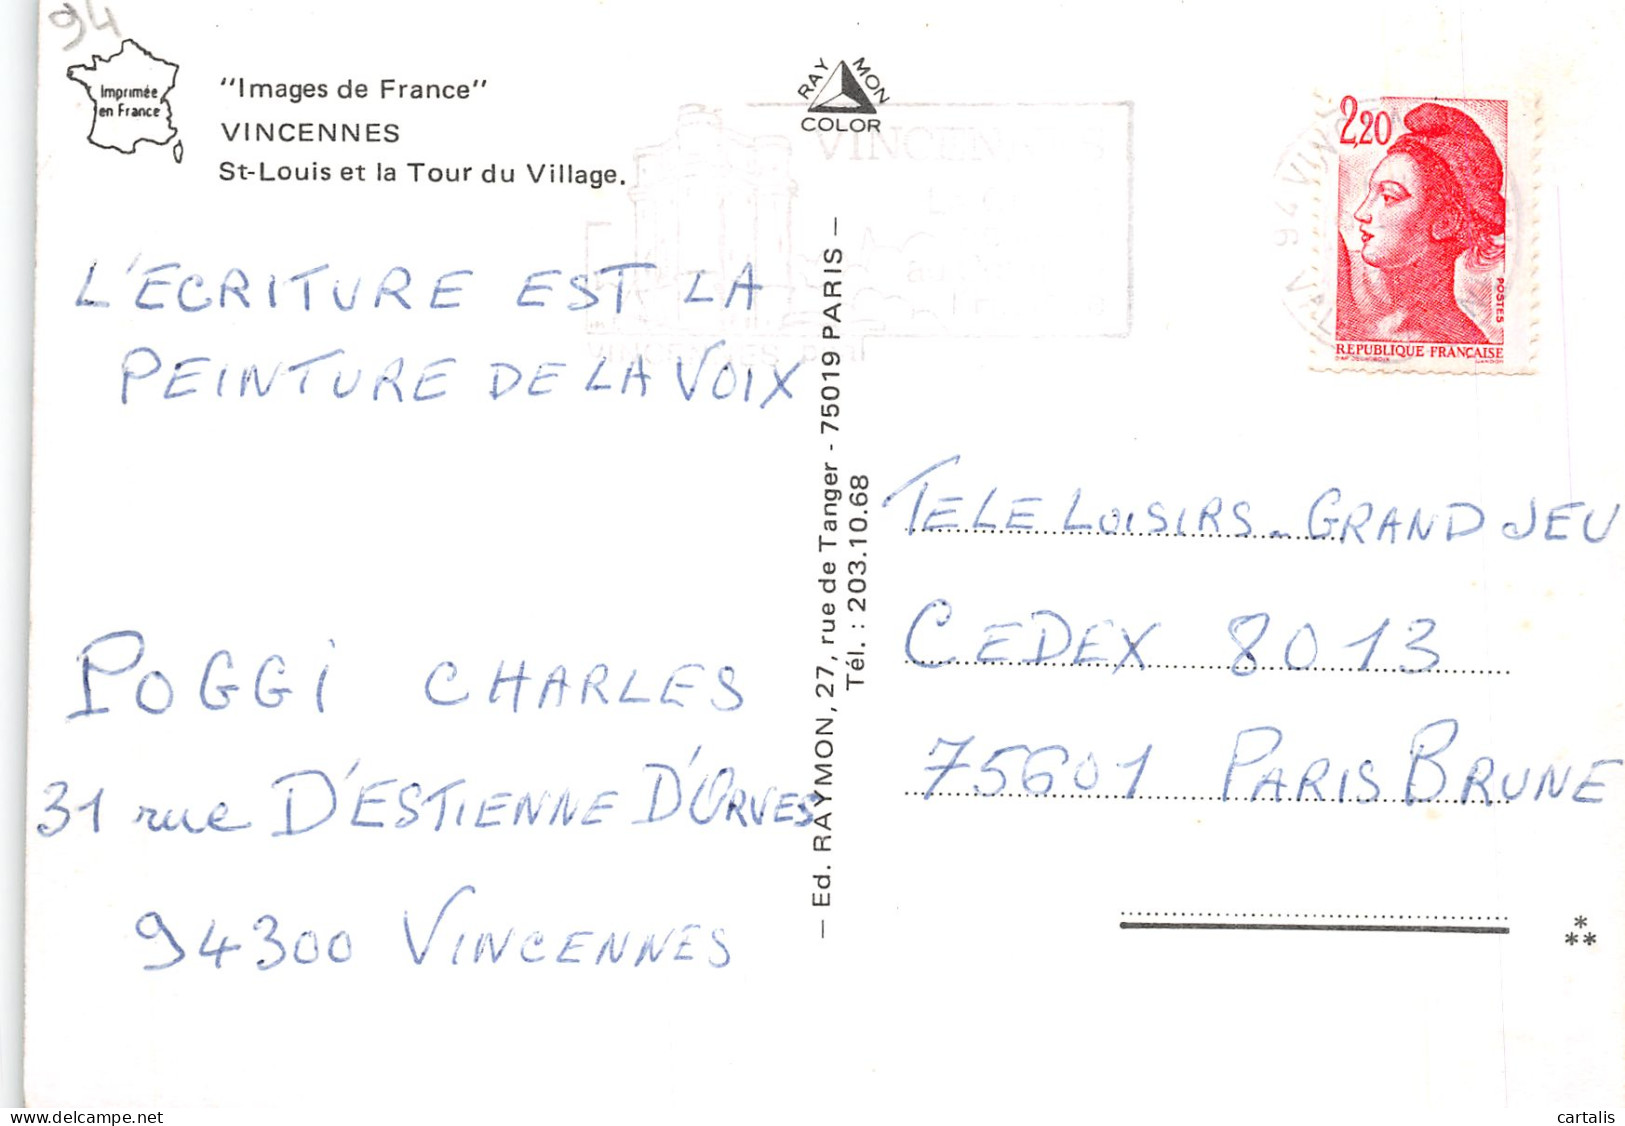 94
Imprimée
en France
"Images de France"
VINCENNES
St-Louis et la Tour du Village.
RAYMON
COLOR
VINCENNES
2,20
POSTES
REPUBLIQUE FRANÇAISE
L'ECRITURE EST LA
PEINTURE DE LA VOIX
POGGI CHARLES
31 rue D'ESTIENNE D'ORVES
94300 VINCENNES
— Ed. RAYMON, 27, rue de Tanger - 75019 PARIS —
Tél. : 203.10.68
TELE LOISIRS - GRAND JEU
CEDEX 8013
75601 PARIS BRUNE
*
**
cartalis